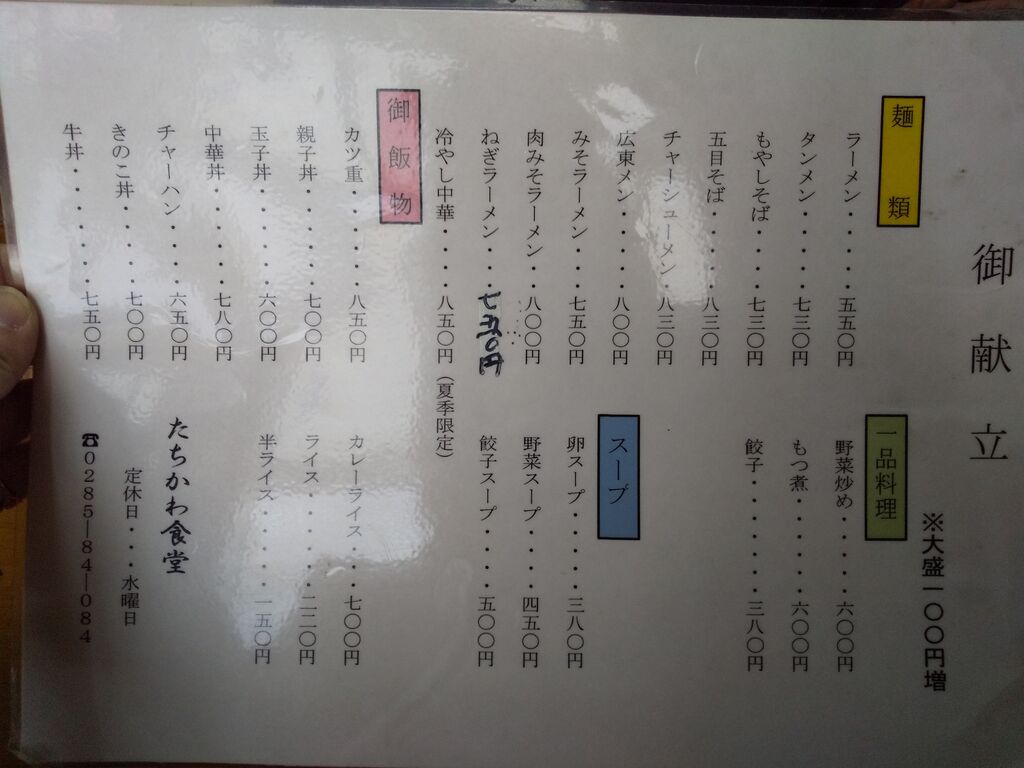 御献立
※大盛一〇〇円増
麺類
ラーメン・・・・五五〇円
タンメン・・・・七三〇円
もやしそば・・・七三〇円
五目そば・・・・八三〇円
チャーシューメン・八三〇円
広東メン・・・・八〇〇円
みそラーメン・・・七五〇円
肉みそラーメン・・八〇〇円
ねぎラーメン・・七五〇円
冷やし中華・・・・八五〇円（夏季限定）
一品料理
野菜炒め・・・・・六〇〇円
もつ煮・・・・・・六〇〇円
餃子・・・・・・・三八〇円
スープ
卵スープ・・・・・三八〇円
野菜スープ・・・・四五〇円
餃子スープ・・・・五〇〇円
御飯物
カツ重・・・・・・八五〇円
親子丼・・・・・・七〇〇円
玉子丼・・・・・・六〇〇円
中華丼・・・・・・七八〇円
チャーハン・・・・六五〇円
きのこ丼・・・・・七〇〇円
牛丼・・・・・・・七五〇円
カレーライス・・・七〇〇円
ライス・・・・・・二二〇円
半ライス・・・・・一五〇円
たちかわ食堂
定休日・・・水曜日
☎0285―84―1084